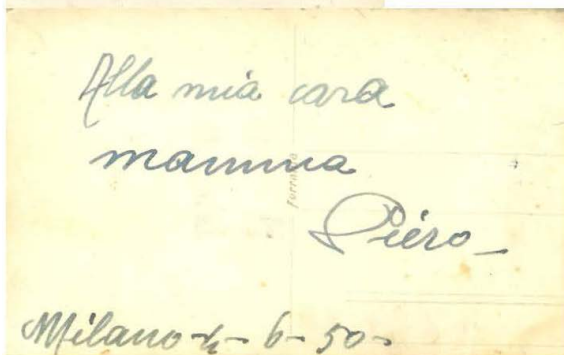 Alla mia cara
mamma
Piero
Milano - 4 - 6 - 50 -